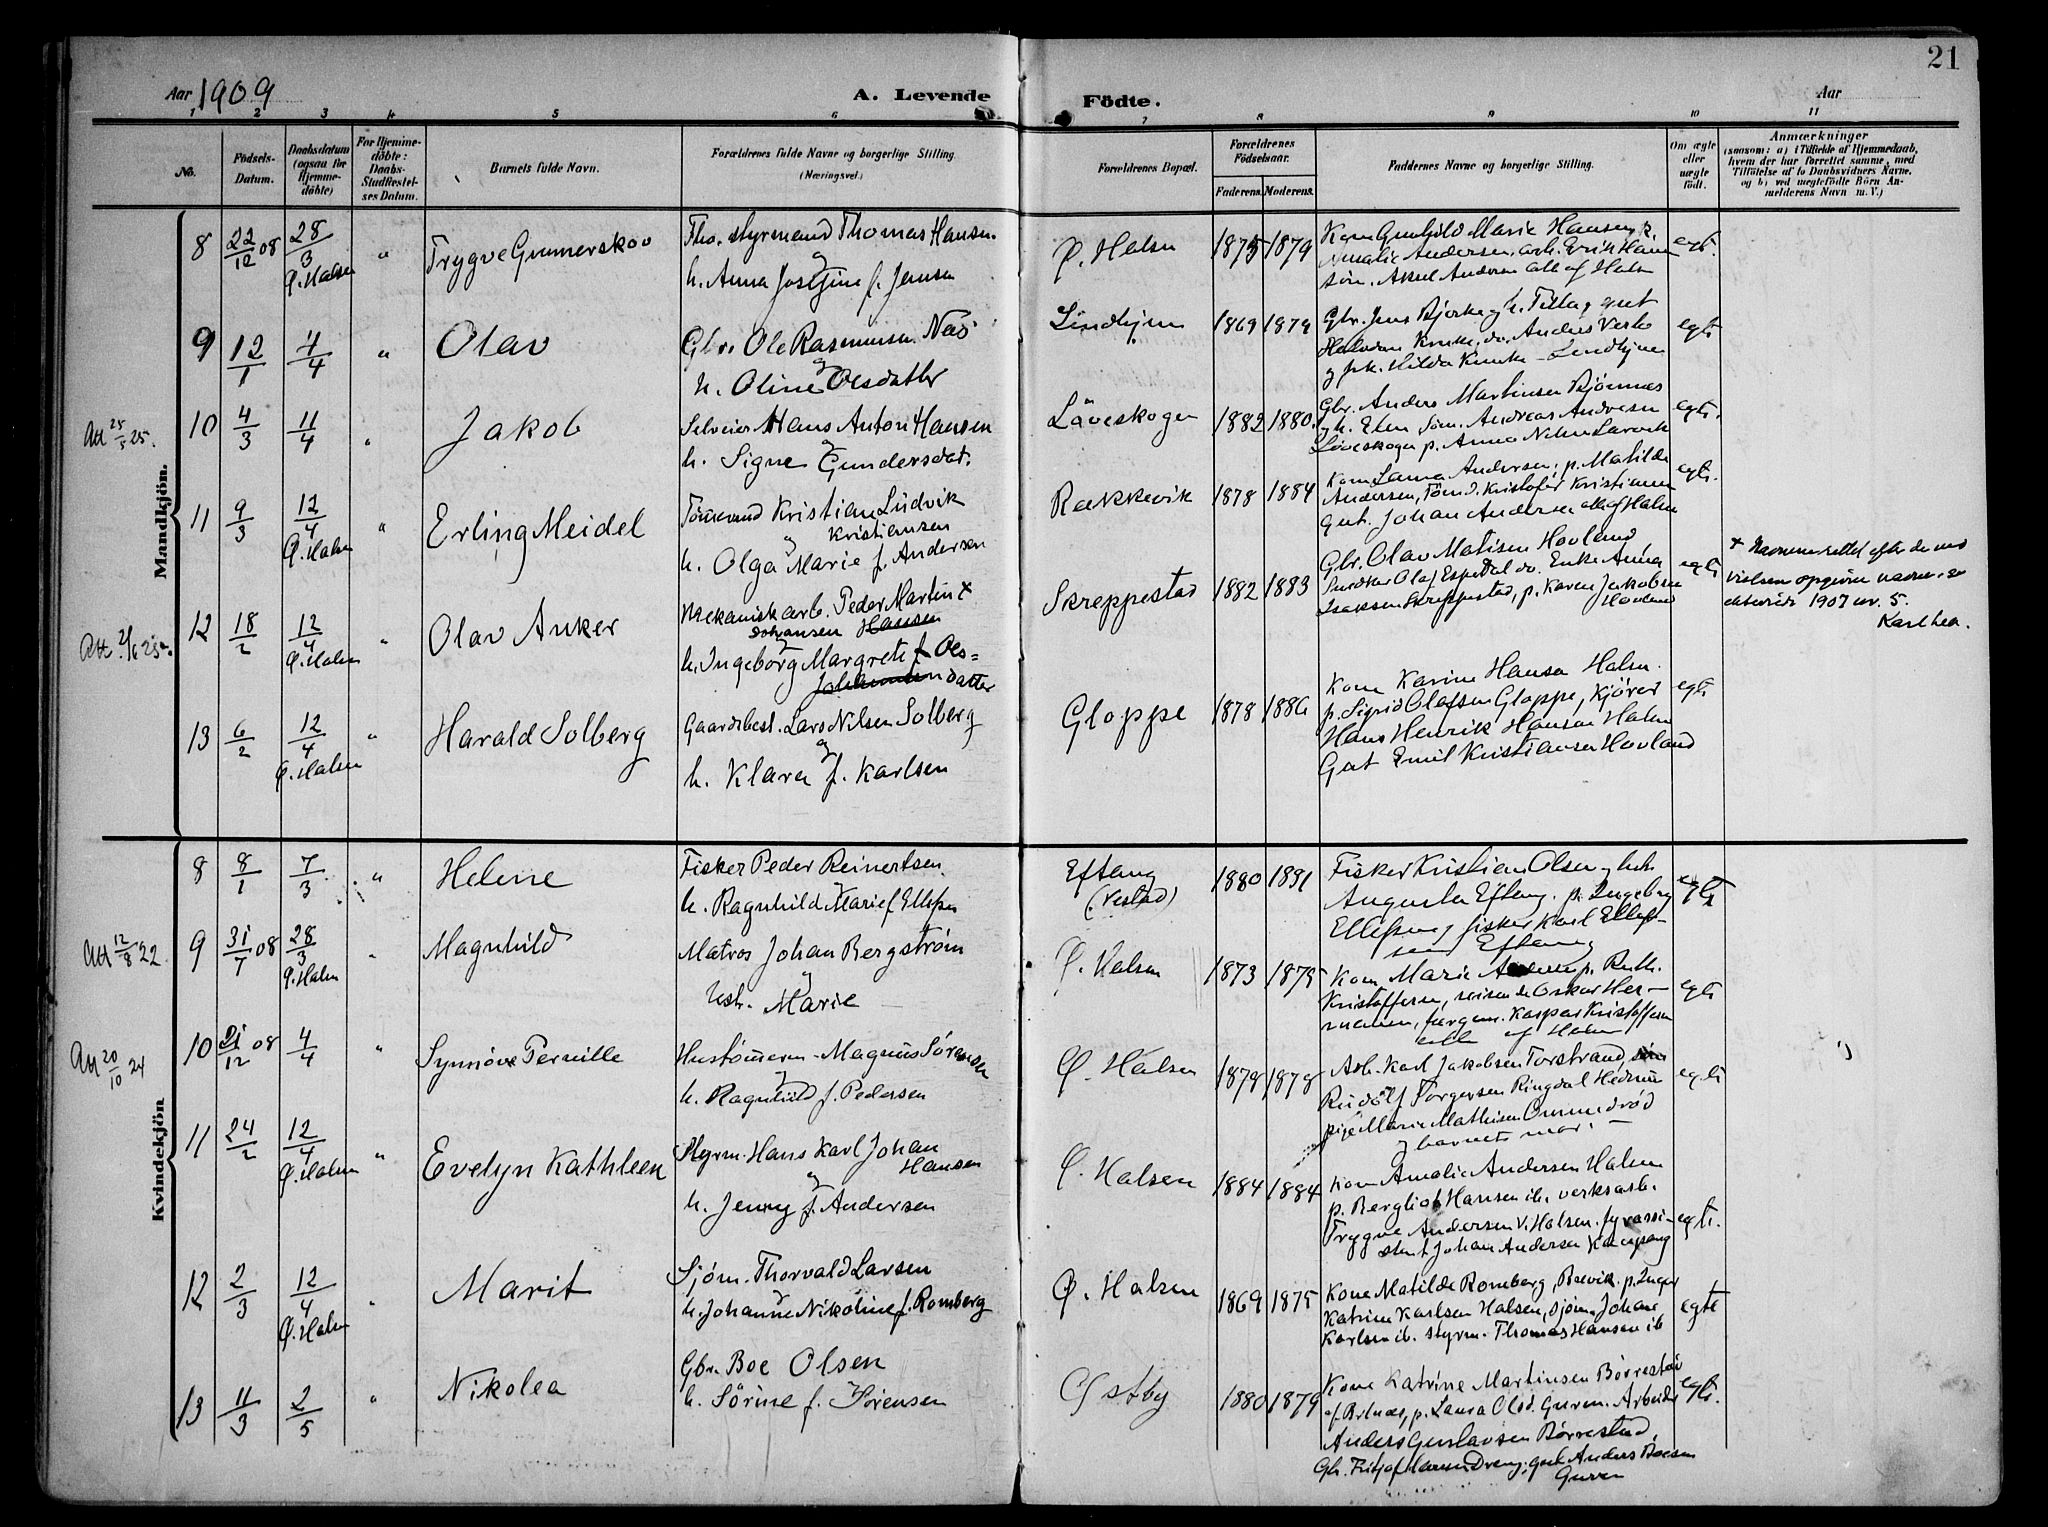 21
Aar 1909
A. Levende
Födte.
Aar
1 2 3 4 5 6 7 8 9 10 11
No.
Födsels-
Datum.
Daabsdatum
(ogsaa for
Hjemme-
döbte)
For Hjemme-
döbte:
Daabs-
Stadfæstel-
ses Datum.
Barnets fulde Navn.
Forældrenes fulde Navne og borgerlige Stilling.
(Næringsvei.)
Forældrenes Bopæl.
Forældrenes
Födselsaar.
Faderens. Moderens.
Faddernes Navne og borgerlige Stilling.
Om ægte
eller
uægte
födt.
Anmærkninger
(saasom: a) i Tilfælde af Hjemmedaab,
hvem der har forrettet samme, med
Tilföielse af to Daabsvidners Navne,
og b) ved uægtefödte Börn An-
melderens Navn m. V.)
Mandkjön.
8 22/12 08 28/3 Ø. Halsen " Trygve Gunnerskov
styrmand Thomas Hansen
og
h. Anna Josefine f. Jensen
Ø. Halsen 1875 1879
Kone Gunhild Marie Hansen, k.
Amalie Andersen, arb. Erik Han
sen. Aksel Andersen alle af Halsen
egt.
9 12/1 4/4 " Olav
Gbr. Ole Rasmussen Næs
og
h. Oline Olsdatter
Lindhjem 1869 1879
Gbr. Jens Bjerke og h. Tilla, gut
Halvdan Kruke, do. Anders Verbo
og pike Hilda Kruke - Lindhjem
egte
Att 25/5 25.
10 4/3 11/4 " Jakob
Selveier Hans Anton Hansen
og
h. Signe Gundersdat.
Löveskogen 1882 1880.
Gbr. Anders Martinsen Bjønnes
og h. Elen Andreas Andresen
Löveskogen p. Anna Nilsen Larvik
egte.
11 9/3 12/4 Ø. Halsen " Erling Meidel
Tömmermand Kristian Ludvik
Kristiansen
og
h. Olga Marie f. Andersen
Rækkevik 1878 1884
Kone Laura Andersen, p. Matilde
Andersen, Tömd. Kristofer Kristiansen
gut. Johan Andersen alle af Halsen
egte.
Att. 2/6 25.
12 18/2 12/4 Ø. Halsen " Olav Anker
Mekanisk arb. Peder Martin x
Johansen Hansen
og
h. Ingeborg Margrete f. Ols=
datter
Skreppestad 1882 1883
Gbr. Olav Matisen Hovland
Snedker Olaf Espedal do. Enke Anna
Isaksen Skreppestad, p. Karen Jakobsen
Hovland
egte
x Navnene rettet efter de ved
vielsen opgivne navne, se
1907 nr. 5.
13 6/2 12/4 Ø. Halsen " Harald Solberg
Gaardsbest. Lars Nilsen Solberg
og
h. Klara f. Karlsen
Gloppe 1878 1886
Kone Karine Hansen Halsen.
p. Sigrid Olafsen Gloppe, Kjörer
Hans Henrik Hansen Halsen
Gut Emil Kristiansen Hovland
egte
Kvindekjön
8 8/1 7/3 " Helene
Fisker Peder Reinertsen.
og
h. Ragnhild Marie f. Ellefsen
Eftang
(Vestad)
1880 1881
Fisker Kristian Olsen og hustr.
Augusta Eftang. p. Ingeborg
Ellefsen og fisker Karl Ellef-
sen Eftang
egte
Att 12/8 22
9 31/7 08 28/3 Ø. Halsen " Magnhild
Matros Johan Bergström
og
Ust. Marie
Ø. Halsen 1873 1875
Kone Marie Andersen p. Ruth.
Kristoffersen, reisende Oskar Her-
mansen, færgem. Kaspar Kristoffersen
alle af Halsen
egte
Att 20/10 24
10 21/12 08 4/4 " Synnöve Pernille
Hustömmerm. Magnus Sörensen
og
h. Ragnhild f. Pedersen
Ø. Halsen 1879 1878
Arb. Karl Jakobsen Torstrand,
Rudolf Torgersen Ringdal Hedrum
pige Marie Mathisen Ommundröd
og barnets mor. -
egte
11 24/2 12/4 Ø. Halsen " Evelyn Kathleen
Styrm. Hans Karl Johan
Hansen
og
h. Jenny f. Andersen
Ø. Halsen 1884 1884
Kone Amalie Andersen Halsen
p. Bergliot Hansen ib. verksarb.
Trygve Andersen V. Halsen. fyrassi-
stent Johan Andersen
egte.
12 2/3 12/4 Ø. Halsen " Marit
Sjöm. Thorvald Larsen
og
h. Johanne Nikoline f. Romberg
Ø. Halsen 1869 1875
Kone Matilde Romberg, Brevik. p. Inger
Katrine Karlsen Halsen, sjöm. Johan
Karlsen ib. styrm. Thomas Hansen ib
egte
13 11/3 2/5 " Nikolea
Gbr. Boe Olsen
og
h. Sörine f. Sörensen
Østby 1880 1879
Kone Katrine Martinsen Børrestad
af Brlnæs, p. Laura Olsd. Guren. Arbeider
Anders Gustavsen Børrestad,
Gbr. Fritjof Larsen Dreng, gut Anders Boesen
Guren
egte.